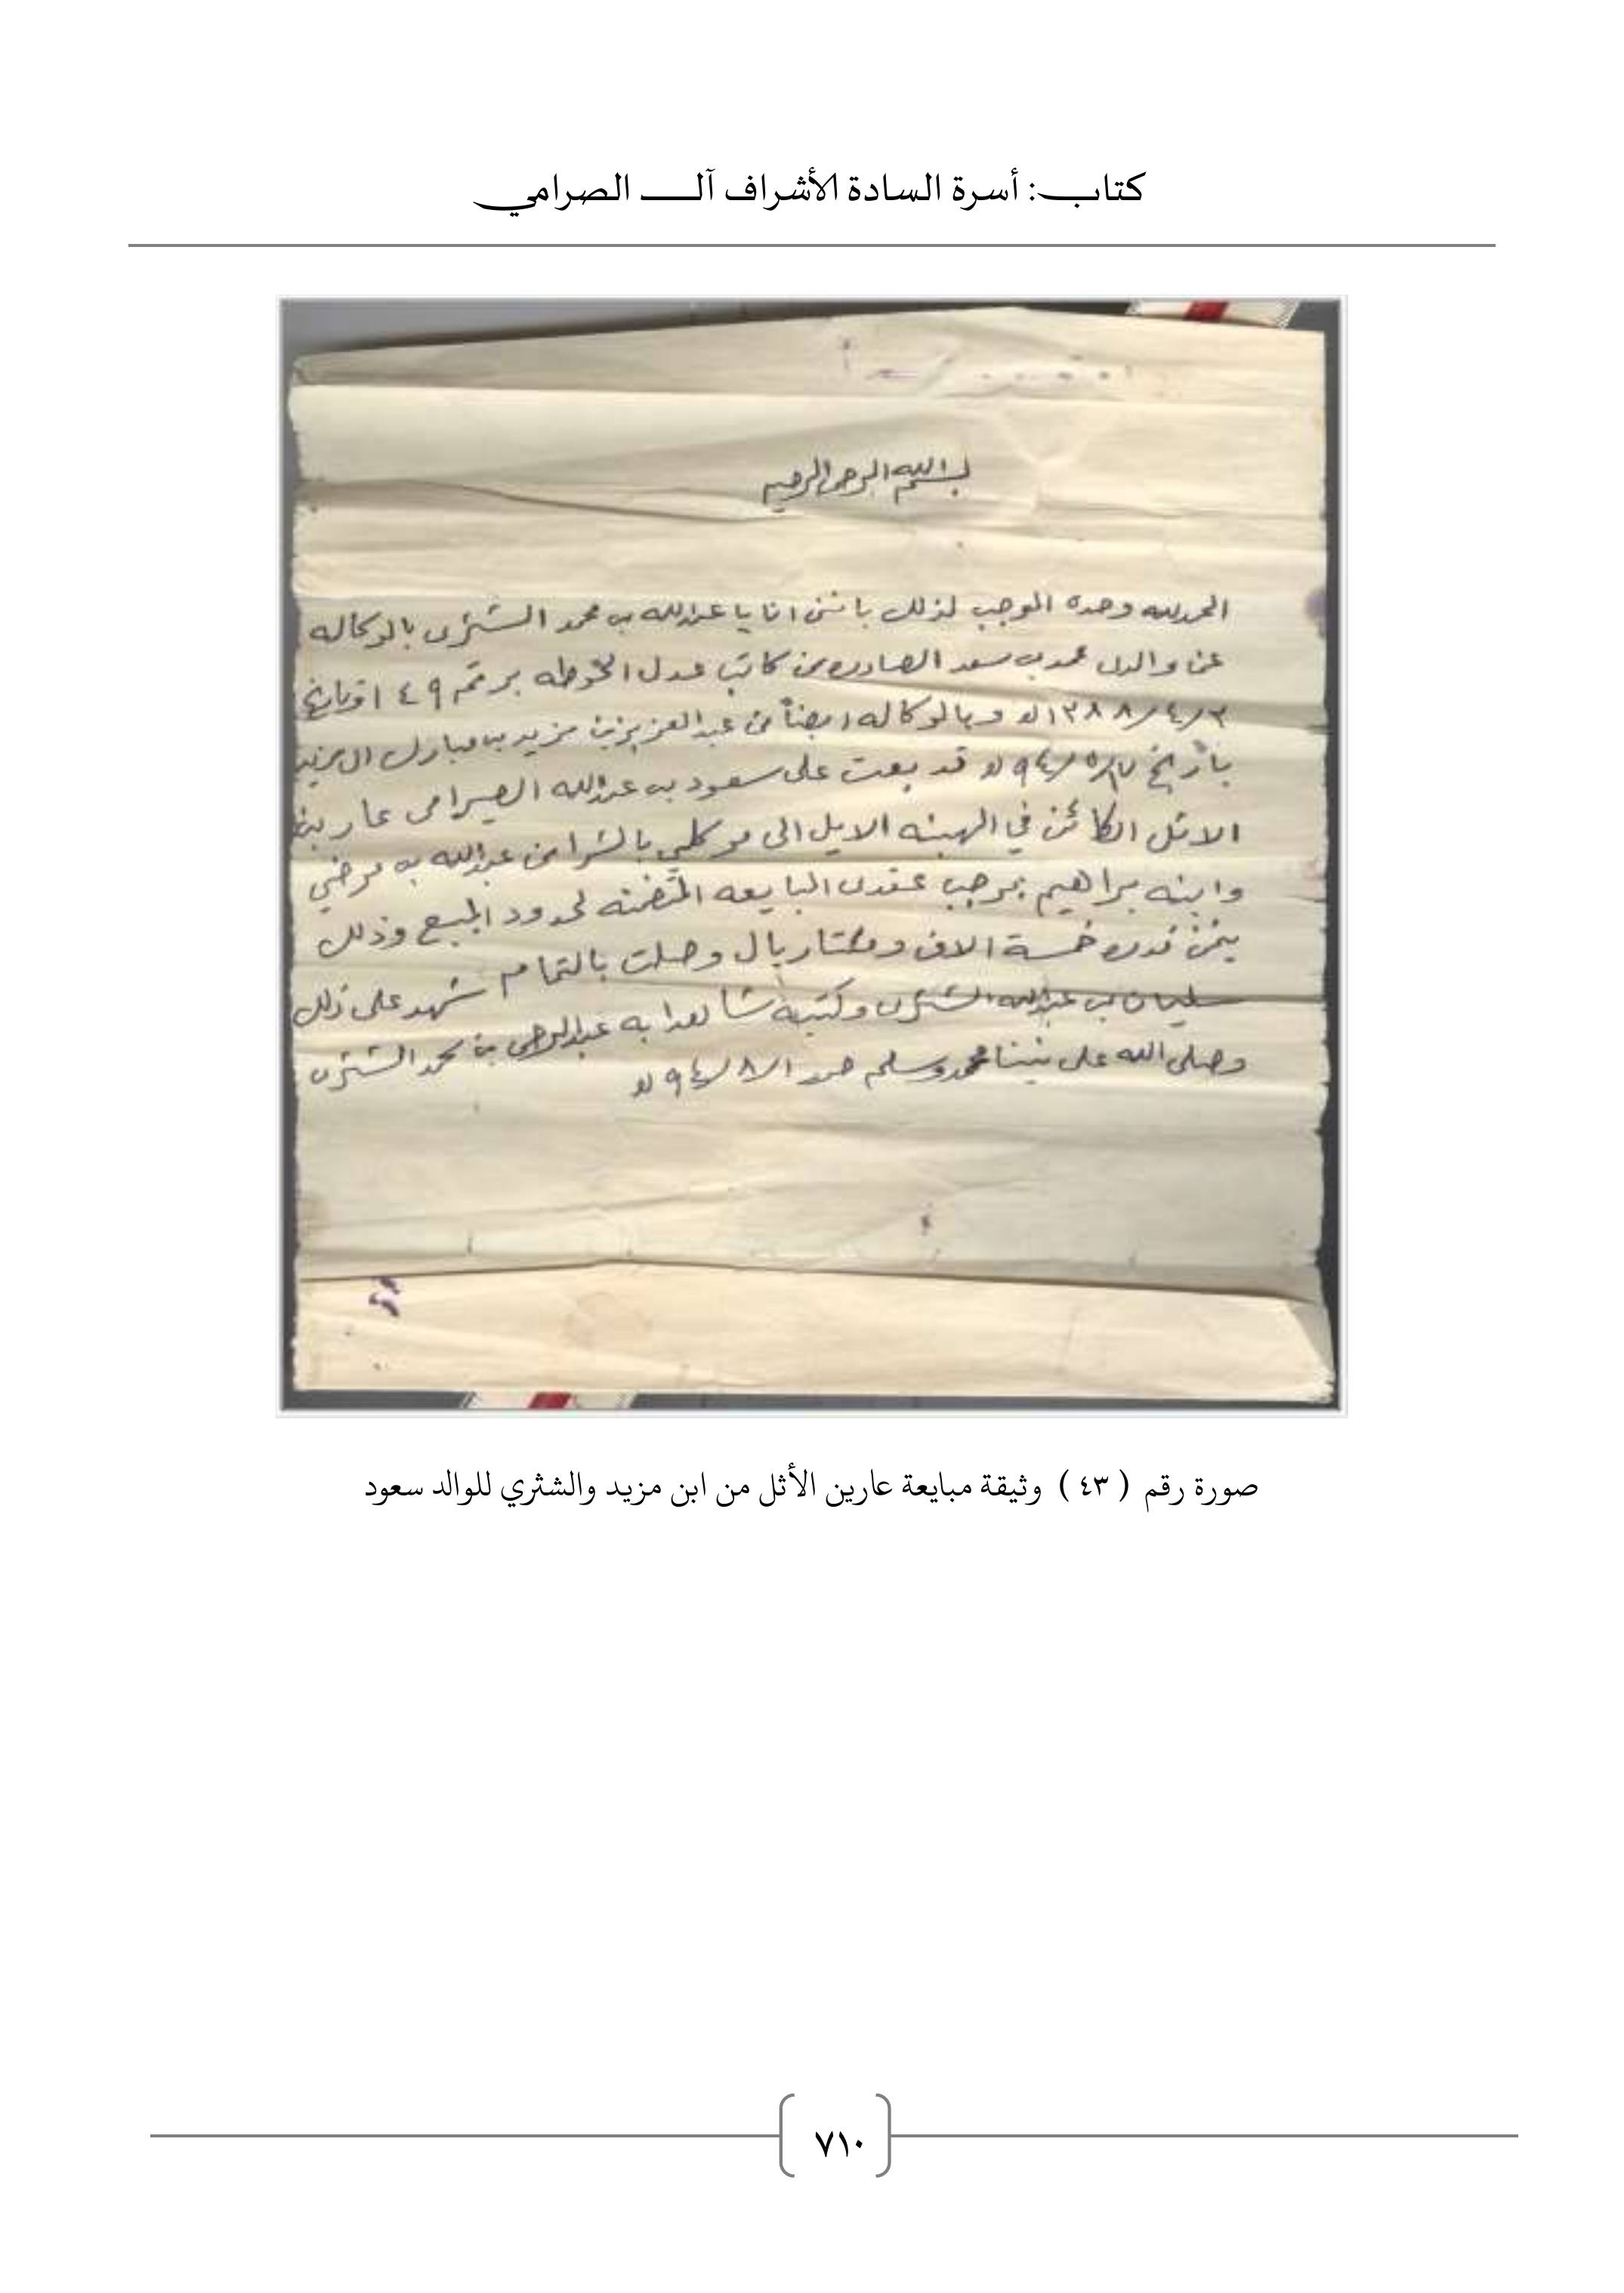 كتاب: أسرة السادة الأشراف آل الصرامي
بسم الله الرحمن الرحيم
الحمدلله وحده الموجب لذلك بانني انا يا عبدالله بن محمد الشثري بالوكاله
عن والدي محمد بن سعد الصادره من كاتب عدل الحوطه برقم ٤٩ ا وتاريخ
٣/٤/١٣٨٨هـ وبالوكاله ايضاً من عبدالعزيز بن مزيد بن مبارك ال مزيد
بتاريخ ٩٤هـ قد بعت على سعود بن عبدالله الصرامي عارين
الاثل الكائن في الهبنه الايل الى موكلي بالشرا من عبدالله بن مرضي
وابنه براهيم بموجب عقدي المبايعه المتضمنه لحدود المبيع وذلك
بثمن قدره خمسة الاف ومئتا ريال وصلت بالتمام شهد على ذلك
سليمان بن عبدالله الشثري وكتبه شاهدا به عبدالرحمن بن محمد الشثري
وصلى الله على نبينا محمد وسلم حرر ١/٨/٩٤هـ
صورة رقم ( ٤٣ ) وثيقة مبايعة عارين الأثل من ابن مزيد والشثري للوالد سعود
٧١٠